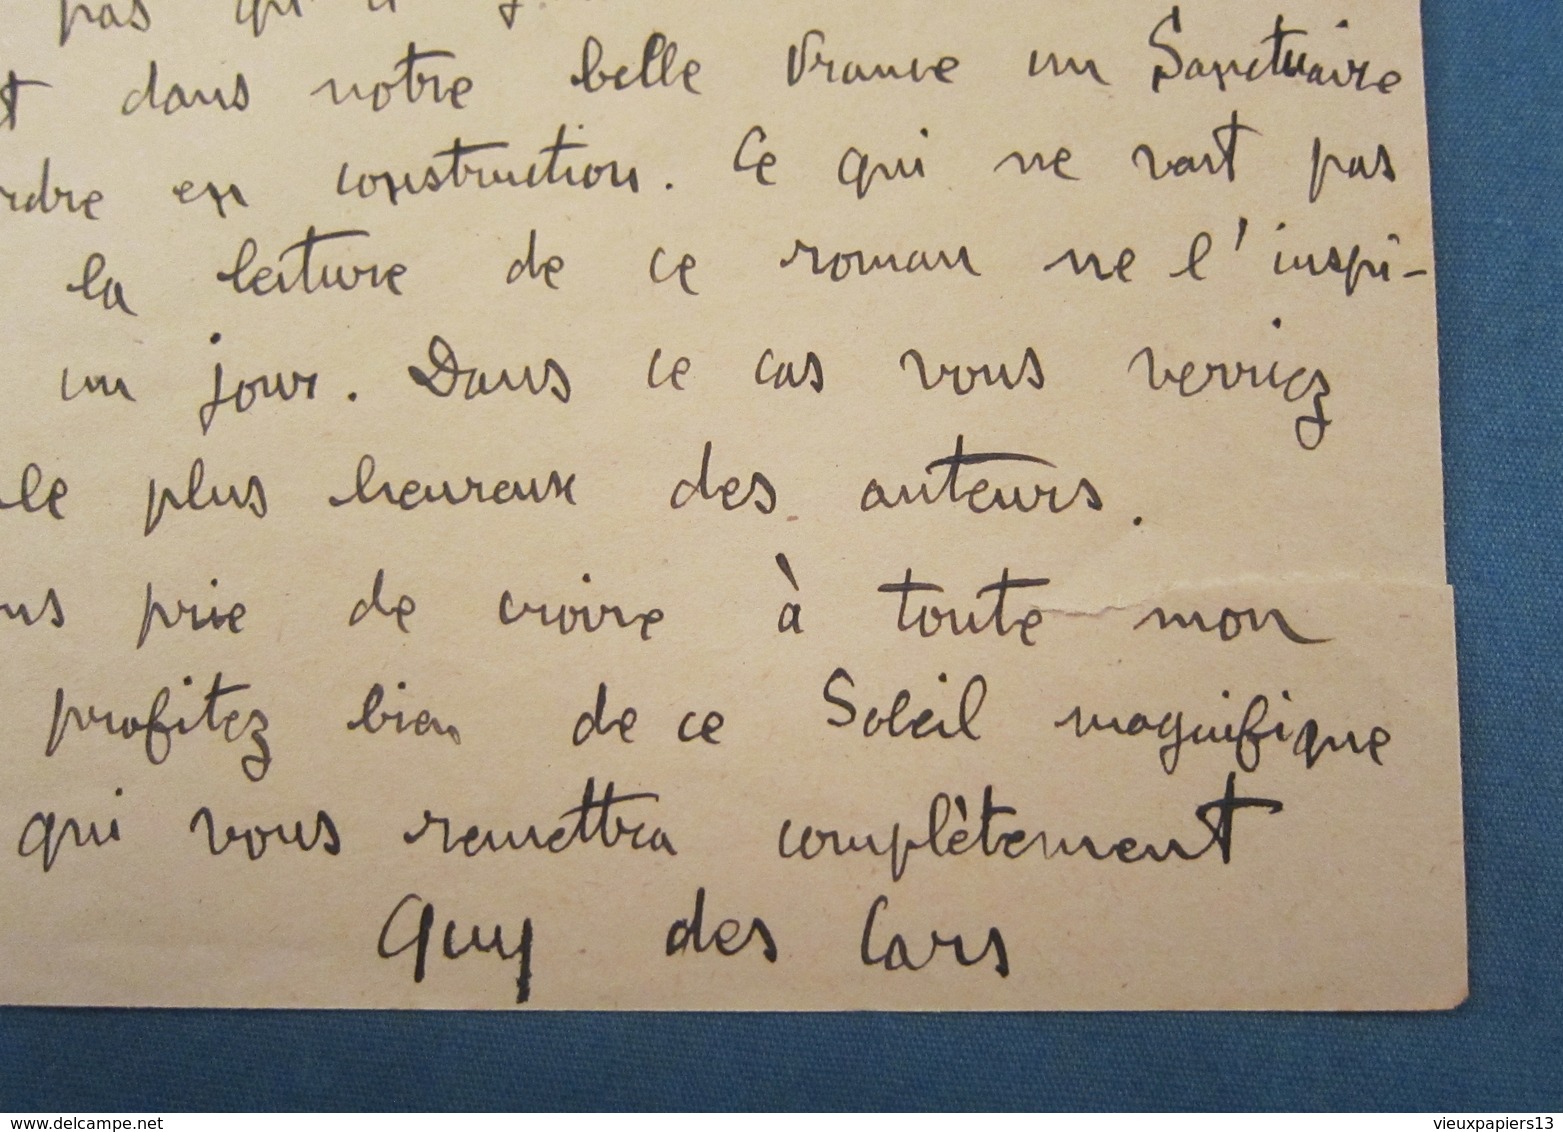 pas qu'il
dans notre belle France un Sanctuaire
rdre en construction. Ce qui ne vait pas
la lecture de ce roman ne l'inspi-
un jour. Dans ce cas vous verriez
le plus heureux des auteurs.
us prie de croire à toute mon
profitez bien de ce Soleil magnifique
qui vous remettra complètement
Guy des Cars
www.delcampe.net
vieuxpapiers13